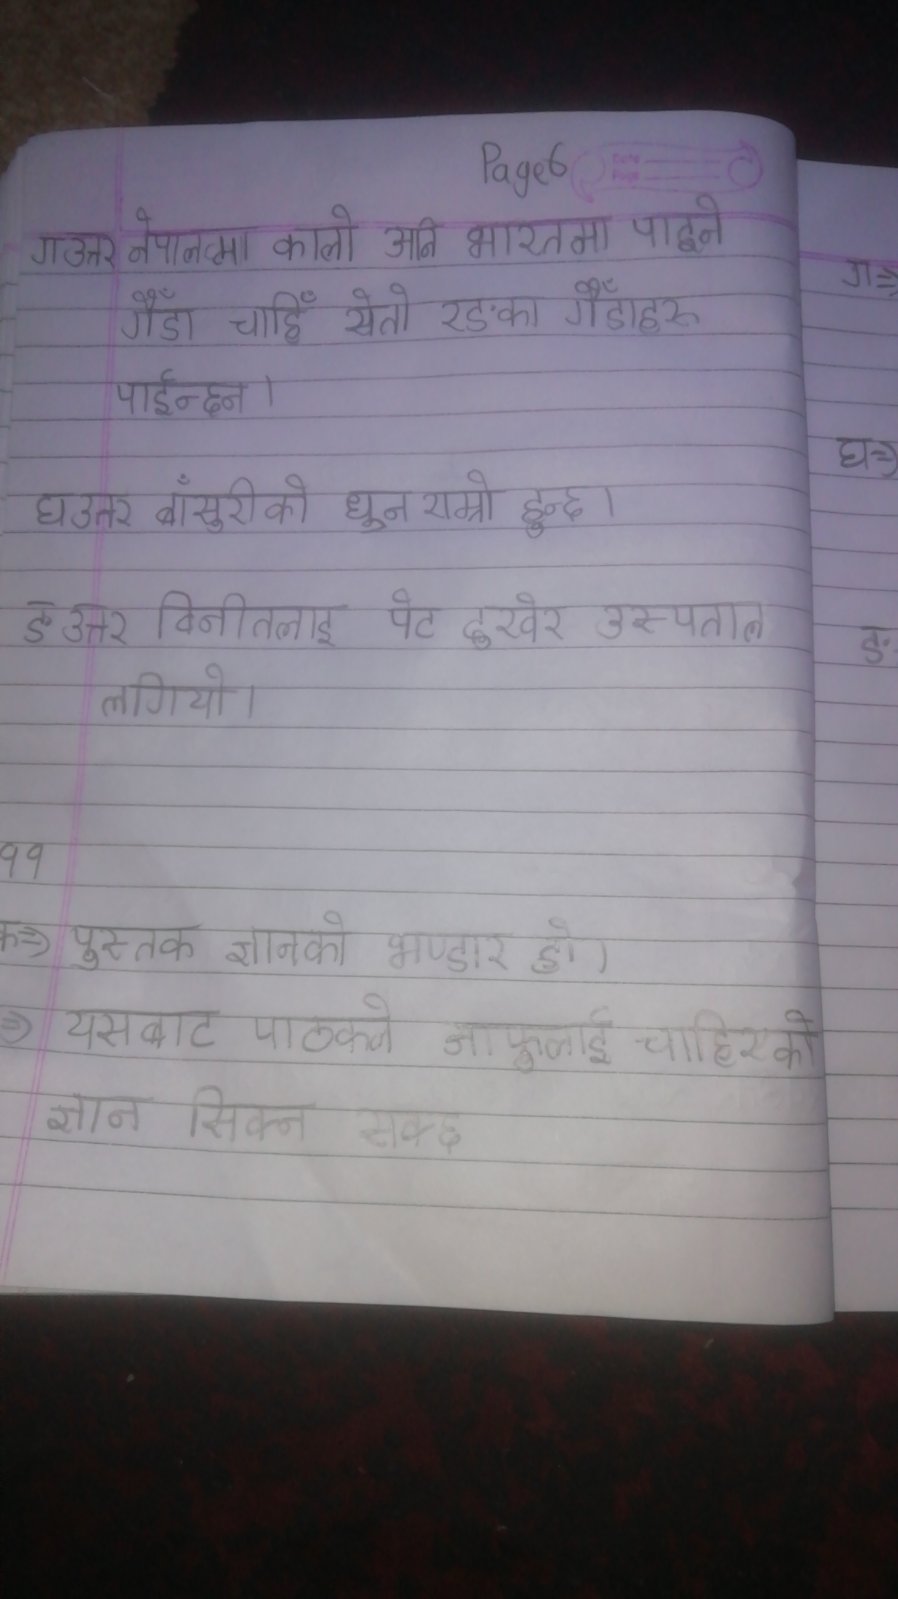 Page 6
Date
Page
ग उत्तर नेपालमा कालो अनि भारतमा पाइने
गैँडा चाहिँ सेतो रङका गैँडाहरू
पाईन्छन ।
घ उत्तर बाँसुरीको धुन राम्रो हुन्छ ।
ङ उत्तर विनीतलाइ पेट दुखेर उस्पताल
लगियो ।
११
क⇒ पुस्तक ज्ञानको भण्डार हो ।
⇒ यसबाट पाठकले आफुलाई चाहिएको
ज्ञान सिक्न सक्छ
ग⇒
घ⇒
ङ